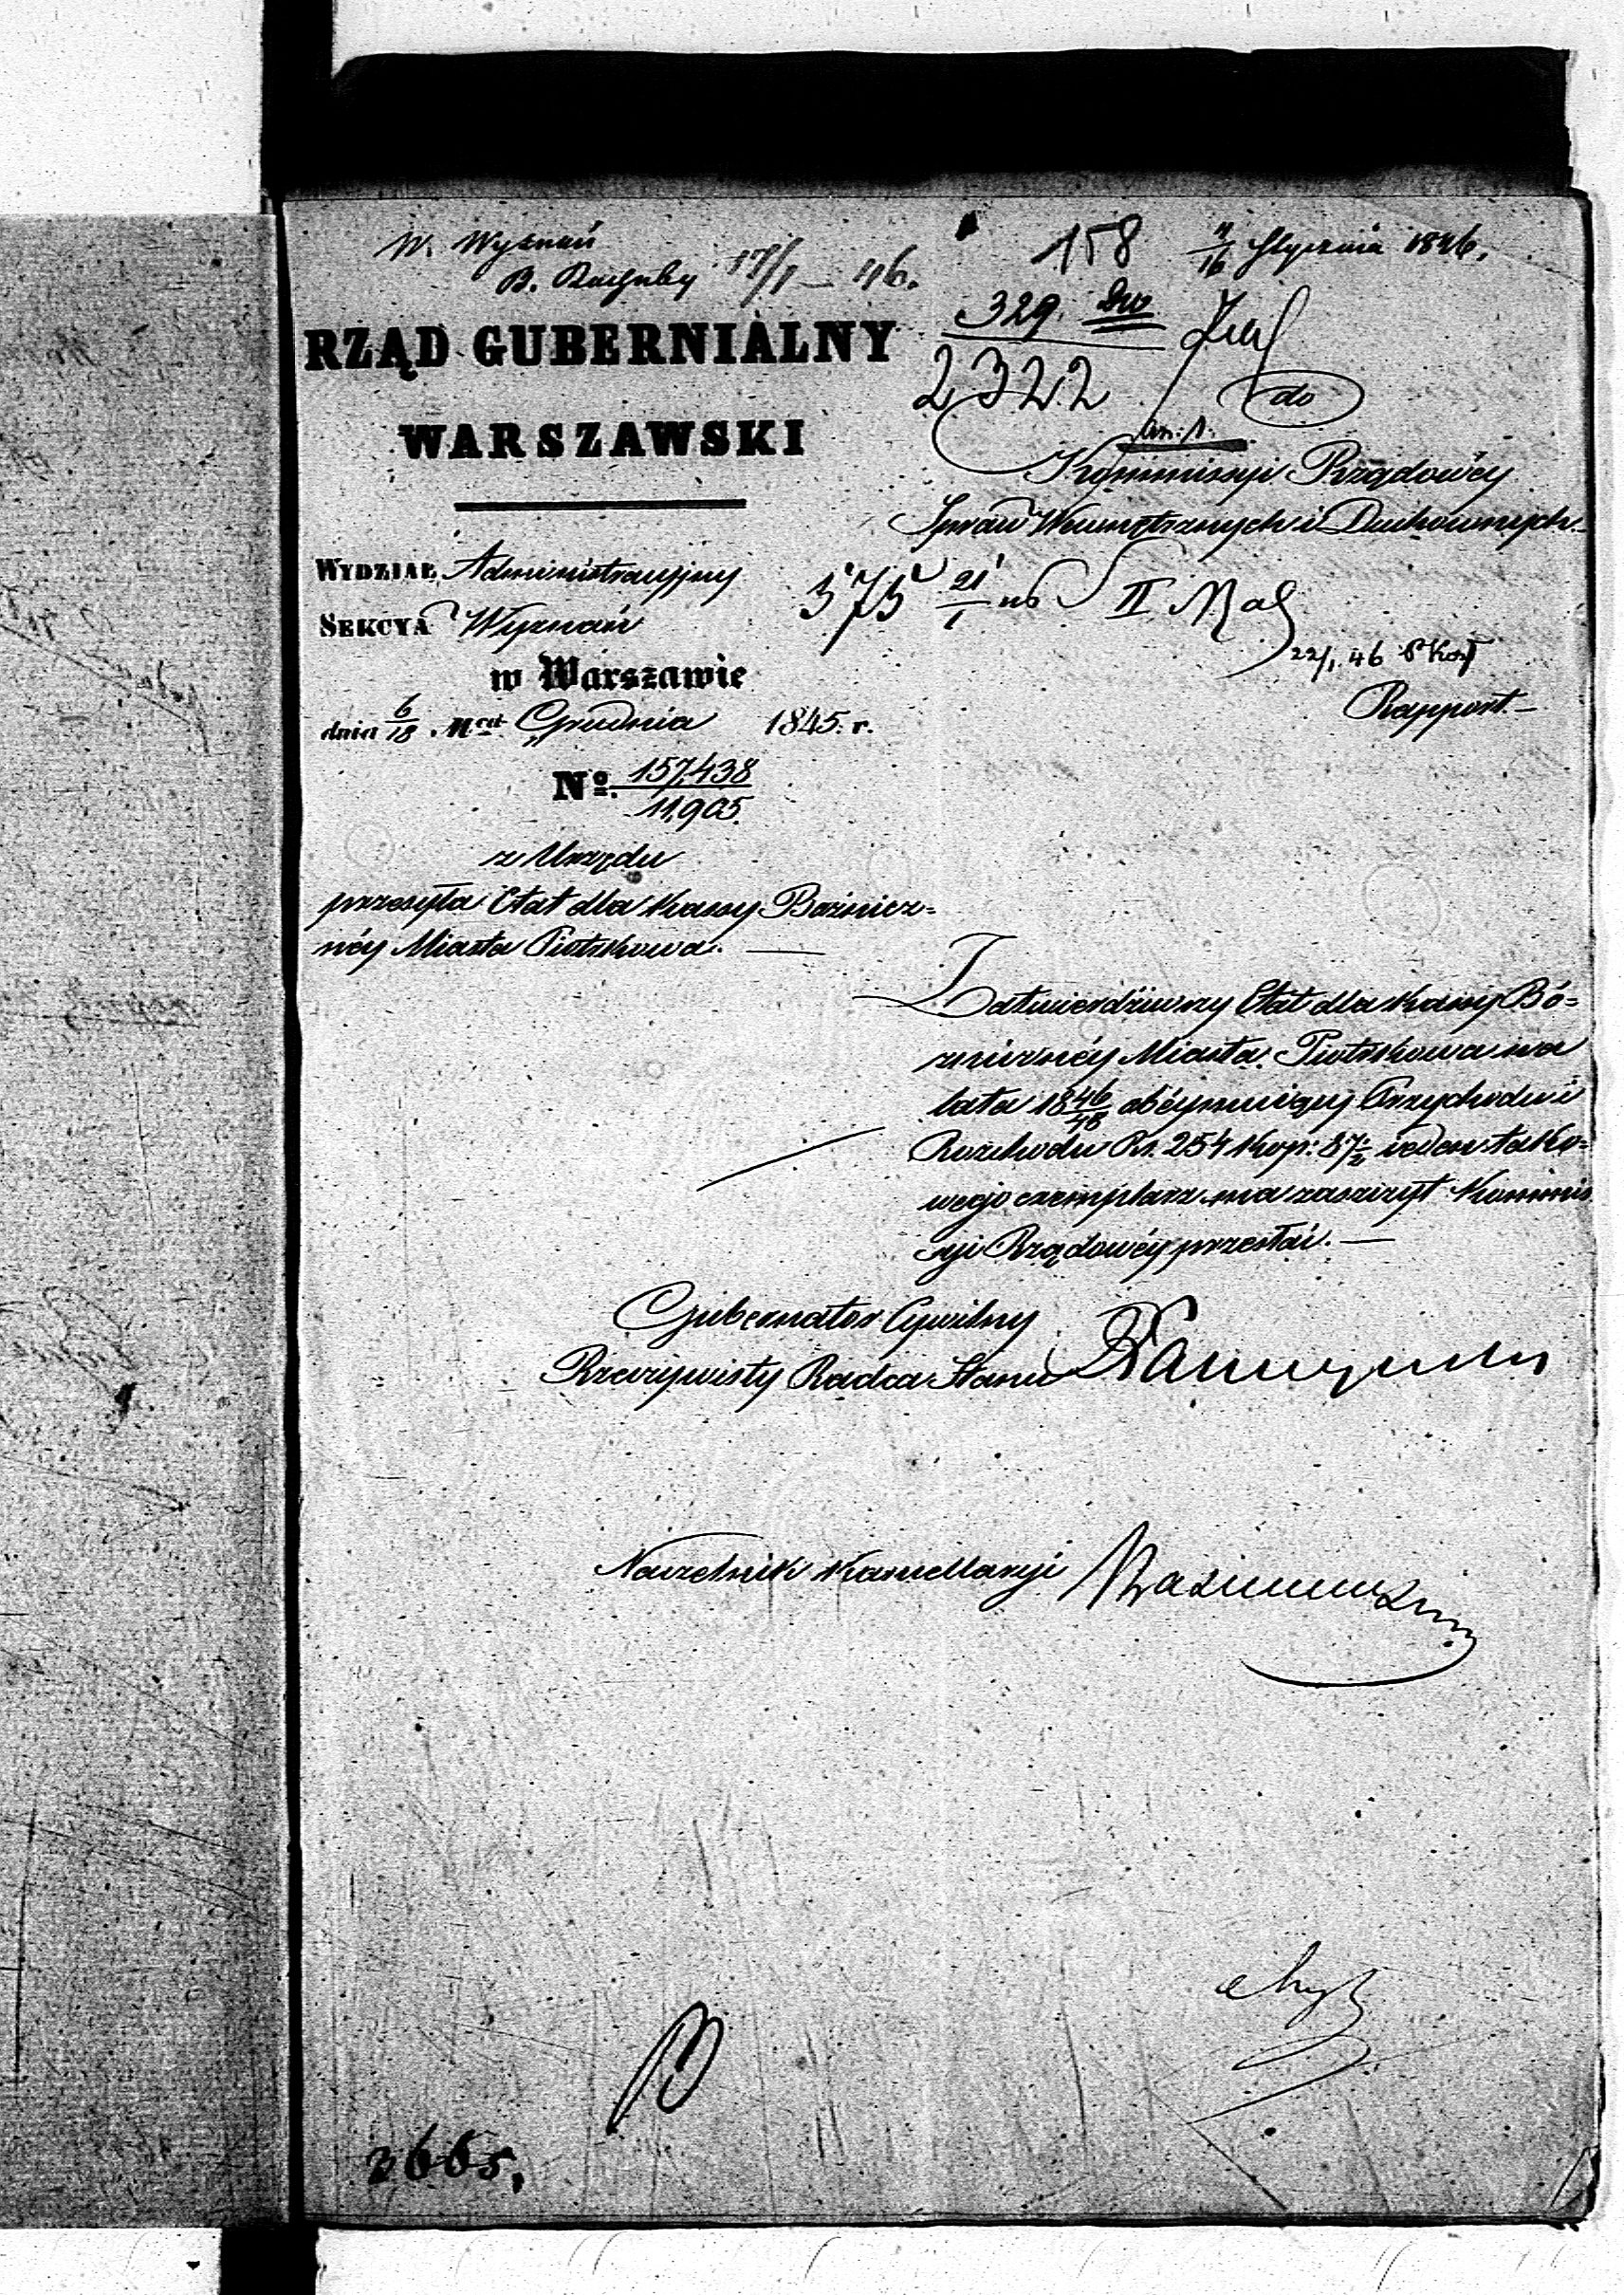 W. Wyznań
B. Rachuby 17/1 — 46.
158 4/16 Stycznia 1846.
329.
2322
do
RZĄD GUBERNIALNY
WARSZAWSKI
Kommissyi Rządowéy
Spraw Wewnętrznych i Duchownych
WYDZIAŁ Administracyjny
SEKCYA Wyznań
21/1 II
22/1 46
w Warszawie
Rapport.—
dnia 6/18 Mca Grudnia 1845. r.
No. 157,438/11,905.
z Urzędu
przesyła Etat dla Kassy Bożnicz=
néy Miasta Piotrkowa. —
Zatwierdziwszy Etat dla Kassy Bó=
żnicznéy Miasta Piotrkowa na
lata 1846/48 obéymuiący Przychodu i
Rozchodu Rs. 254 kop: 87½ ieden tako=
wego exemplarz ma zaszczyt Kommis
syi Rządowéy przesłać. —
Gubernator Cywilny
Rzeczywisty Radca Stanu
Naczelnik Kancellaryi
3665.